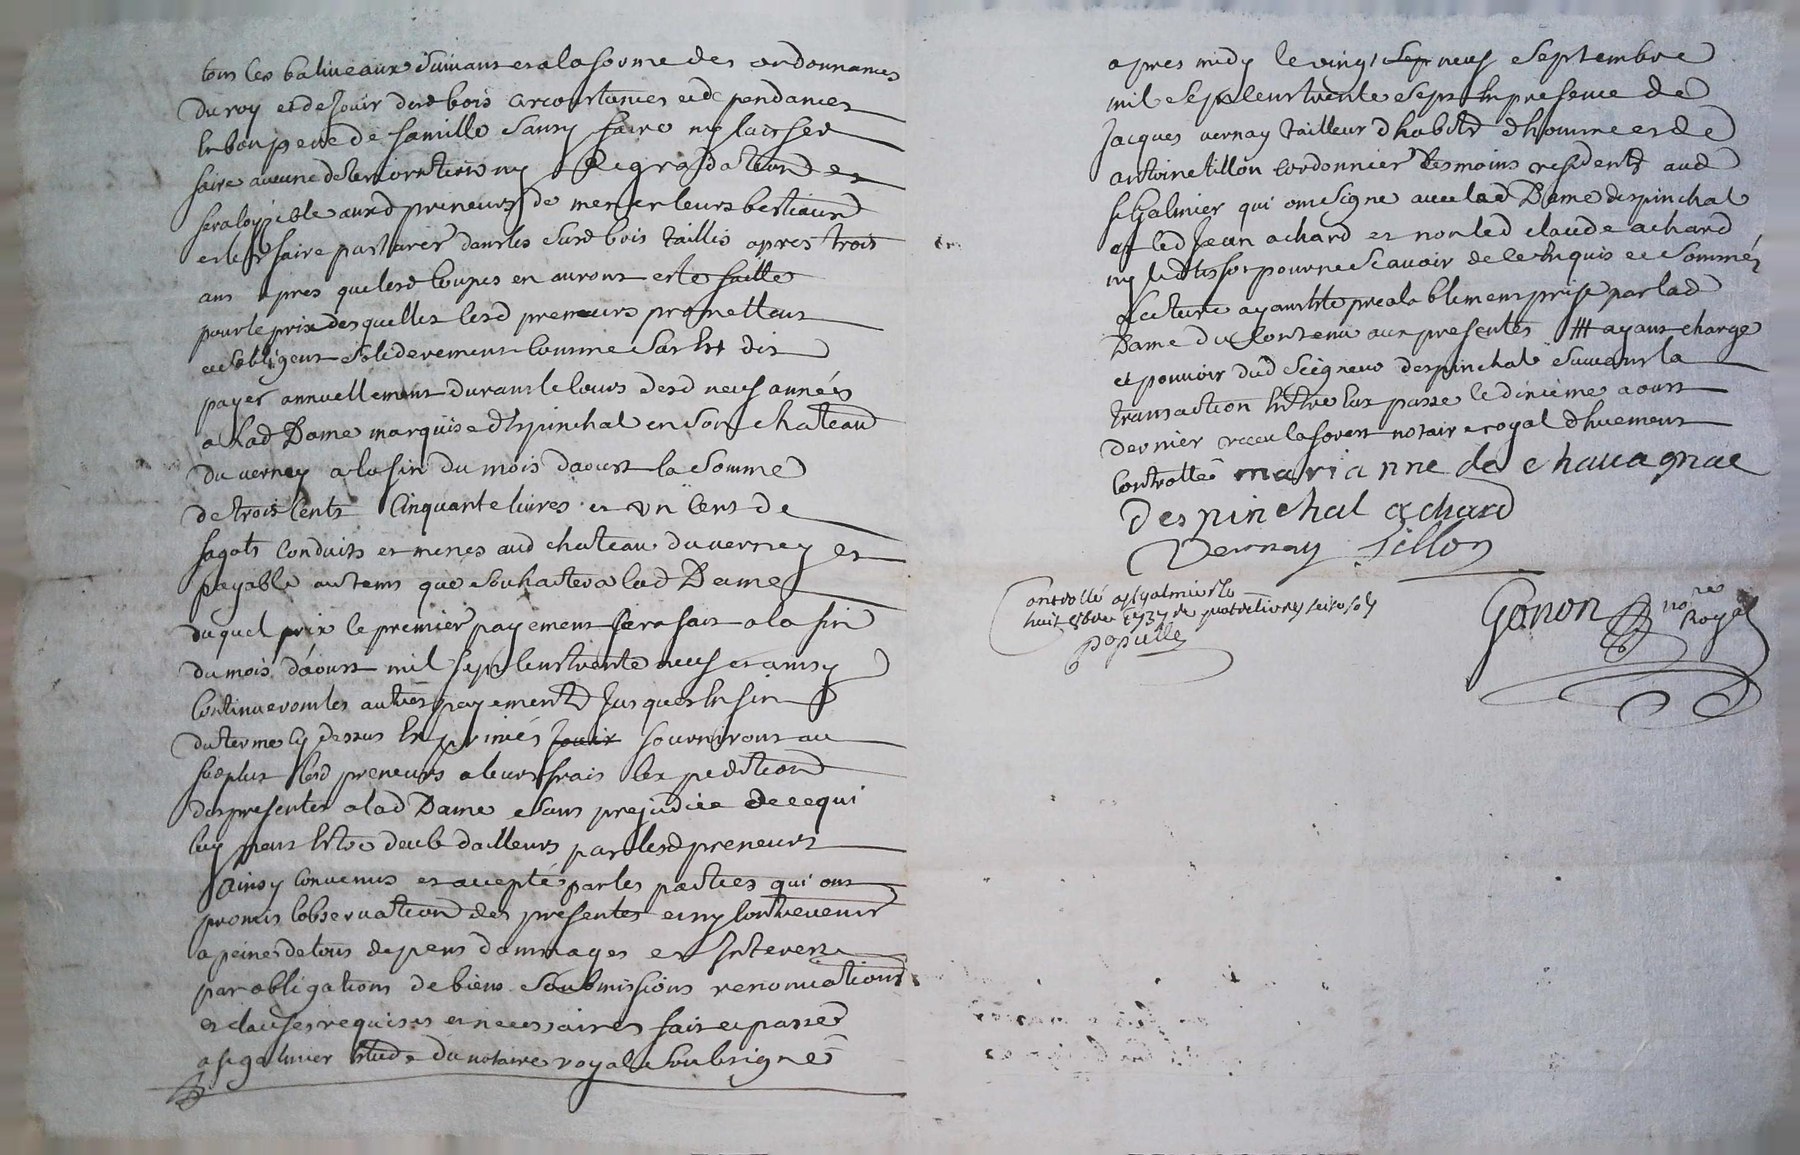 tous les baliveaux suivant et a la forme des ordonnances
du roy et de jouir desd bois circonstances et dependances
en bon pere de famille sans y faire ny laisser
faire aucune deteriorations ny degradations et
sera loysible auxd preneurs de mener leurs bestiaux
et les faire pasturer dans les susd bois taillis apres trois
ans apres que lesd coupes en auront esté faitte
pour le prix desquelles lesd preneurs promettent
et s'obligent solidairement comme sus est dit
payer annuellement durant le cours desd neuf années
a lad Dame marquise d'Espinchal en son chateau
du verney a la fin du mois daoust la somme
de trois cents cinquante livres et un cent de
fagots conduits et menes aud chateau du verney et
payable au tems que souhaitera lad Dame
duquel prix le premier payement sera fait a la fin
du mois d'aoust mil sept cent trente neuf et ainsy
continueront les autres payements jusques en fin
du terme cy dessus exprimés jouir fourniront au
surplus lesd preneurs a leurs frais lexpedition
des presentes a lad Dame sans prejudice de ce qui
luy peut estre deub d'ailleurs par lesd preneurs
Ainsy convenus et accepté par les parties qui ont
promis lobservation des presentes et ny contrevenir
a peines de tous depens dommages et Interest
par obligations de biens soubmissions renonciations
et clauses requises et necessaires fait et passé
a st galmier etude du notaire royal soubsigné
apres midy le vingt sept neuf septembre
mil sept cent trente sept en presence de
Jacques vernay tailleur d'habits d'homme et de
antoine tillon cordonnier temoins residents aud
st Galmier qui ont signé avec lad Dame despinchal
et led Jean achard et non led claude achard
ny led tissot pour ne scavoir de ce enquis et sommés
Lecture ayant été prealablement prise par lad
Dame du contenu aux presentes # ayant charge
et pouvoir dud seigneur despinchal suivant la
transaction entre eux passé le dixieme aoust
dernier receu lafovest notaire royal dhuement
controllé marianne de chavagnac
despinchal achard
Vernay tillon
Controllé a st galmier le
huit 8bre 1737 de quatre livres seize sols
populle
Gonon nore
Royal